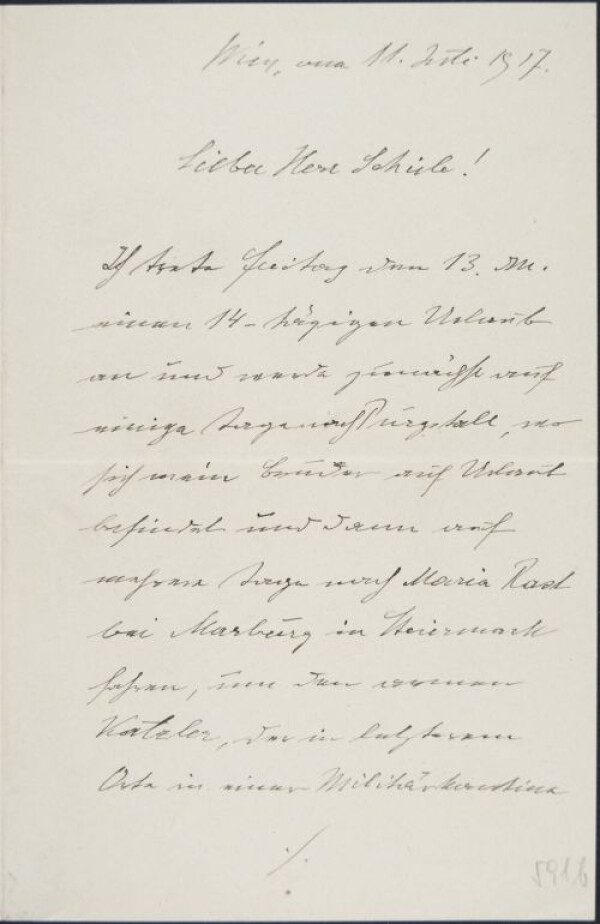 Wien, am 11. Juli 1917.
Lieber Herr Schiele!
Ich trete Freitag den 13. M.
einen 14-tägigen Urlaub
an und werde zunächst auf
einige Tage nach Purgstall, wo
sich mein Bruder auf Urlaub
befindet und dann auf
mehrere Tage nach Maria Rast
bei Marburg in Steiermark
fahren, um den armen
Katzler, der in letzterem
Orte in einer Militärkantine
./.
5916